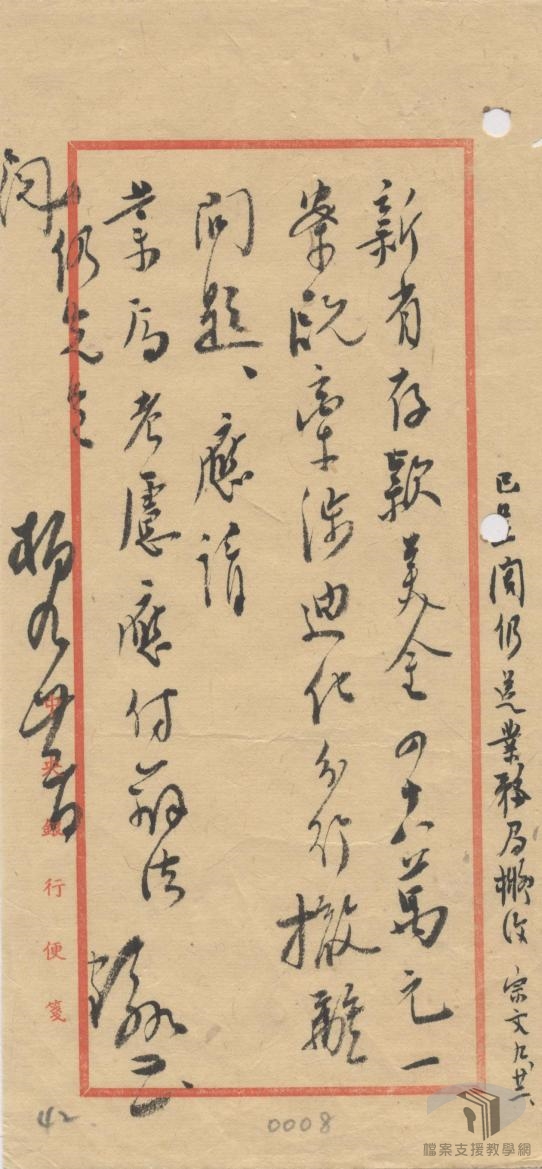 新省存款美金四十六萬元一
案既牽涉迪化分行撤離
問題、應請
業局考慮應付辦法
閱仍送
已呈閱仍送業務局擬復 宗文 九、廿二、
中央銀行便箋
42
0008
檔案支援教學網